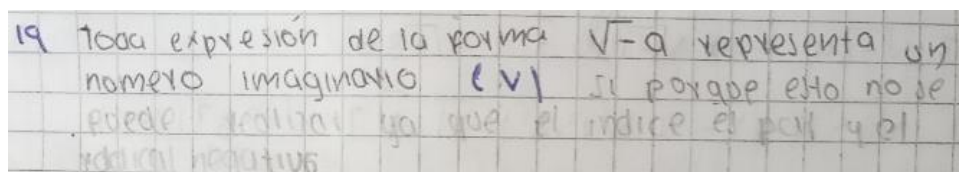 19 Toda expresión de la forma √-a representa un
nomero imaginario (V) si porqoe esto no se
poede realizar ya que el indice es par y el
radical negativo